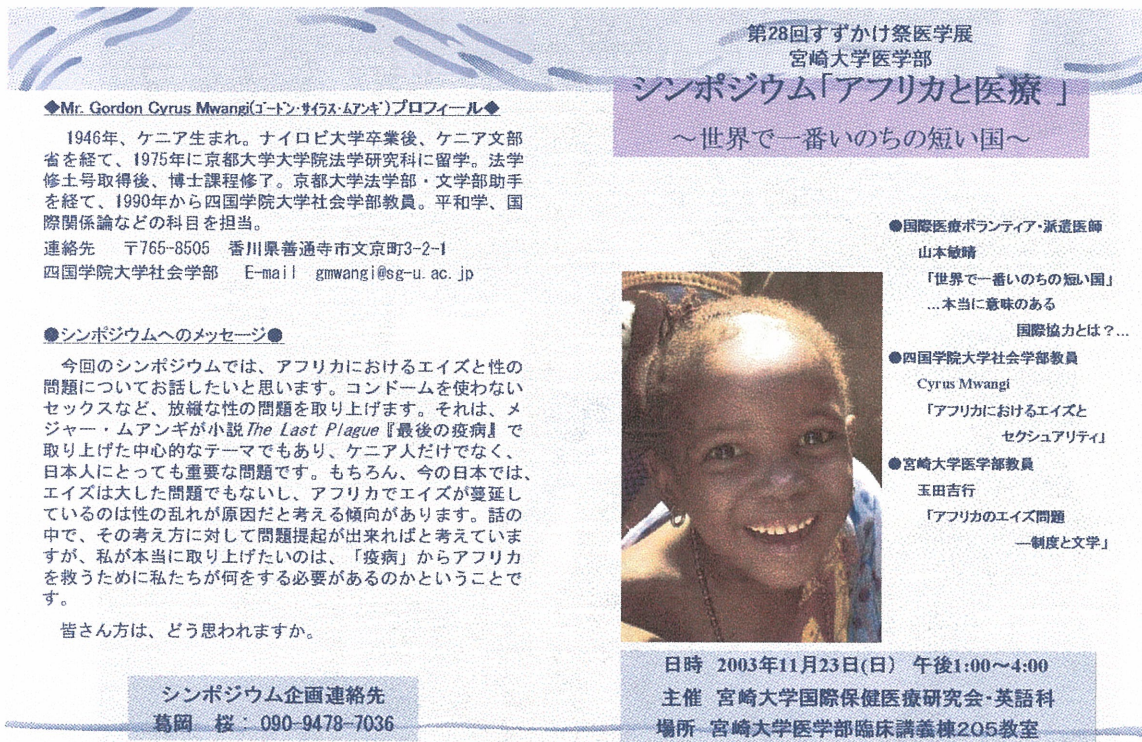 ◆Mr. Gordon Cyrus Mwangi(ｺﾞｰﾄﾞﾝ･ｻｲﾗｽ･ﾑｱﾝｷﾞ)プロフィール◆
1946年、ケニア生まれ。ナイロビ大学卒業後、ケニア文部
省を経て、1975年に京都大学大学院法学研究科に留学。法学
修士号取得後、博士課程修了。京都大学法学部・文学部助手
を経て、1990年から四国学院大学社会学部教員。平和学、国
際関係論などの科目を担当。
連絡先　〒765-8505　香川県善通寺市文京町3-2-1
四国学院大学社会学部　E-mail　gmwangi@sg-u.ac.jp
●シンポジウムへのメッセージ●
今回のシンポジウムでは、アフリカにおけるエイズと性の
問題についてお話したいと思います。コンドームを使わない
セックスなど、放縦な性の問題を取り上げます。それは、メ
ジャー・ムアンギが小説The Last Plague『最後の疫病』で
取り上げた中心的なテーマでもあり、ケニア人だけでなく、
日本人にとっても重要な問題です。もちろん、今の日本では、
エイズは大した問題でもないし、アフリカでエイズが蔓延し
ているのは性の乱れが原因だと考える傾向があります。話の
中で、その考え方に対して問題提起が出来ればと考えていま
すが、私が本当に取り上げたいのは、「疫病」からアフリカ
を救うために私たちが何をする必要があるのかということで
す。
皆さん方は、どう思われますか。
シンポジウム企画連絡先
葛岡　桜：090-9478-7036
第28回すずかけ祭医学展
宮崎大学医学部
シンポジウム「アフリカと医療 」
～世界で一番いのちの短い国～
●国際医療ボランティア・派遣医師
山本敏晴
「世界で一番いのちの短い国」
…本当に意味のある
国際協力とは？…
●四国学院大学社会学部教員
Cyrus Mwangi
「アフリカにおけるエイズと
セクシュアリティ」
●宮崎大学医学部教員
玉田吉行
「アフリカのエイズ問題
―制度と文学」
日時　2003年11月23日(日)　午後1:00～4:00
主催　宮崎大学国際保健医療研究会・英語科
場所　宮崎大学医学部臨床講義棟205教室